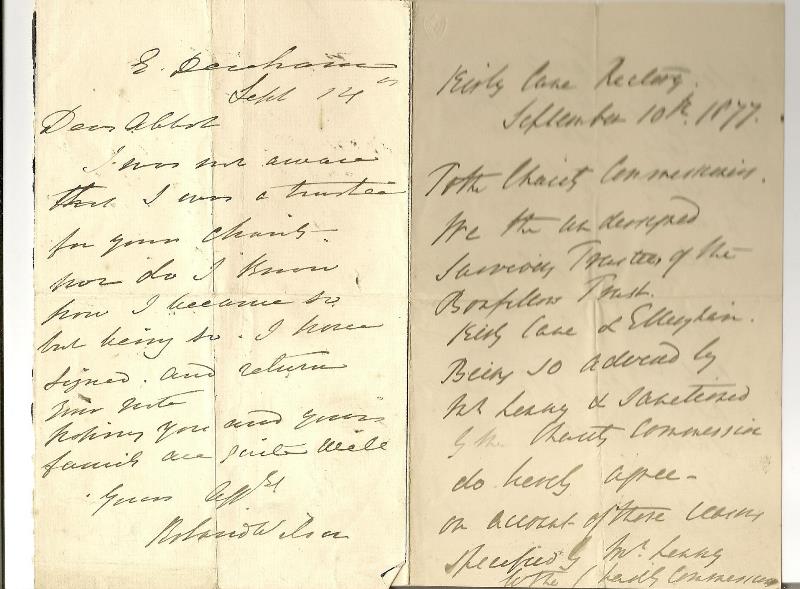 E. Dereham
Sept 14th
Dear Abbot
I was not aware
that I was a trustee
for your Charity
nor do I know
how I became so
but being so. I have
signed. and return
your note
hoping you and your
family are quite well
Yours Affly
Roland Wilson
Kirby Cane Rectory.
September 10th. 1877.
To the Charity Commissioners.
We the undersigned
Surviving Trustees of the
Bonfellow Trust.
Kirby Cane & Ellingham.
Being so advised by
Mr Lenny & sanctioned
by the Charity Commission
do hereby agree -
on account of those reasons
specified by Mr. Lenny
to the Charity Commission